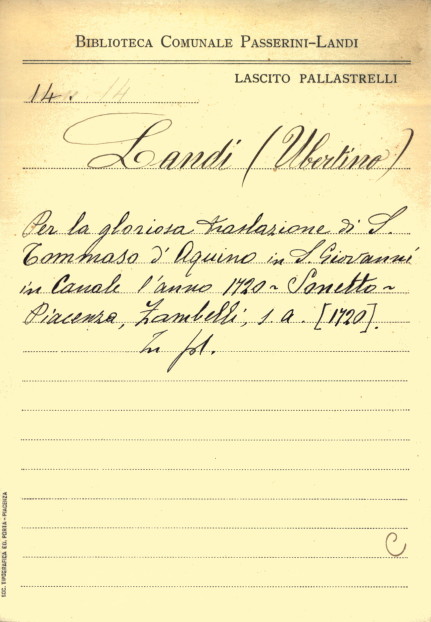 BIBLIOTECA COMUNALE PASSERINI-LANDI
LASCITO PALLASTRELLI
14.
Landi (Ubertino)
Per la gloriosa traslazione di S.
Tommaso d'Aquino in S. Giovanni
in Canale l'anno 1720 ~ Sonetto ~
Piacenza, Zambelli, s. a. [1720].
In fol.
C
SOC. TIPOGRAFICA ED. PORTA - PIACENZA